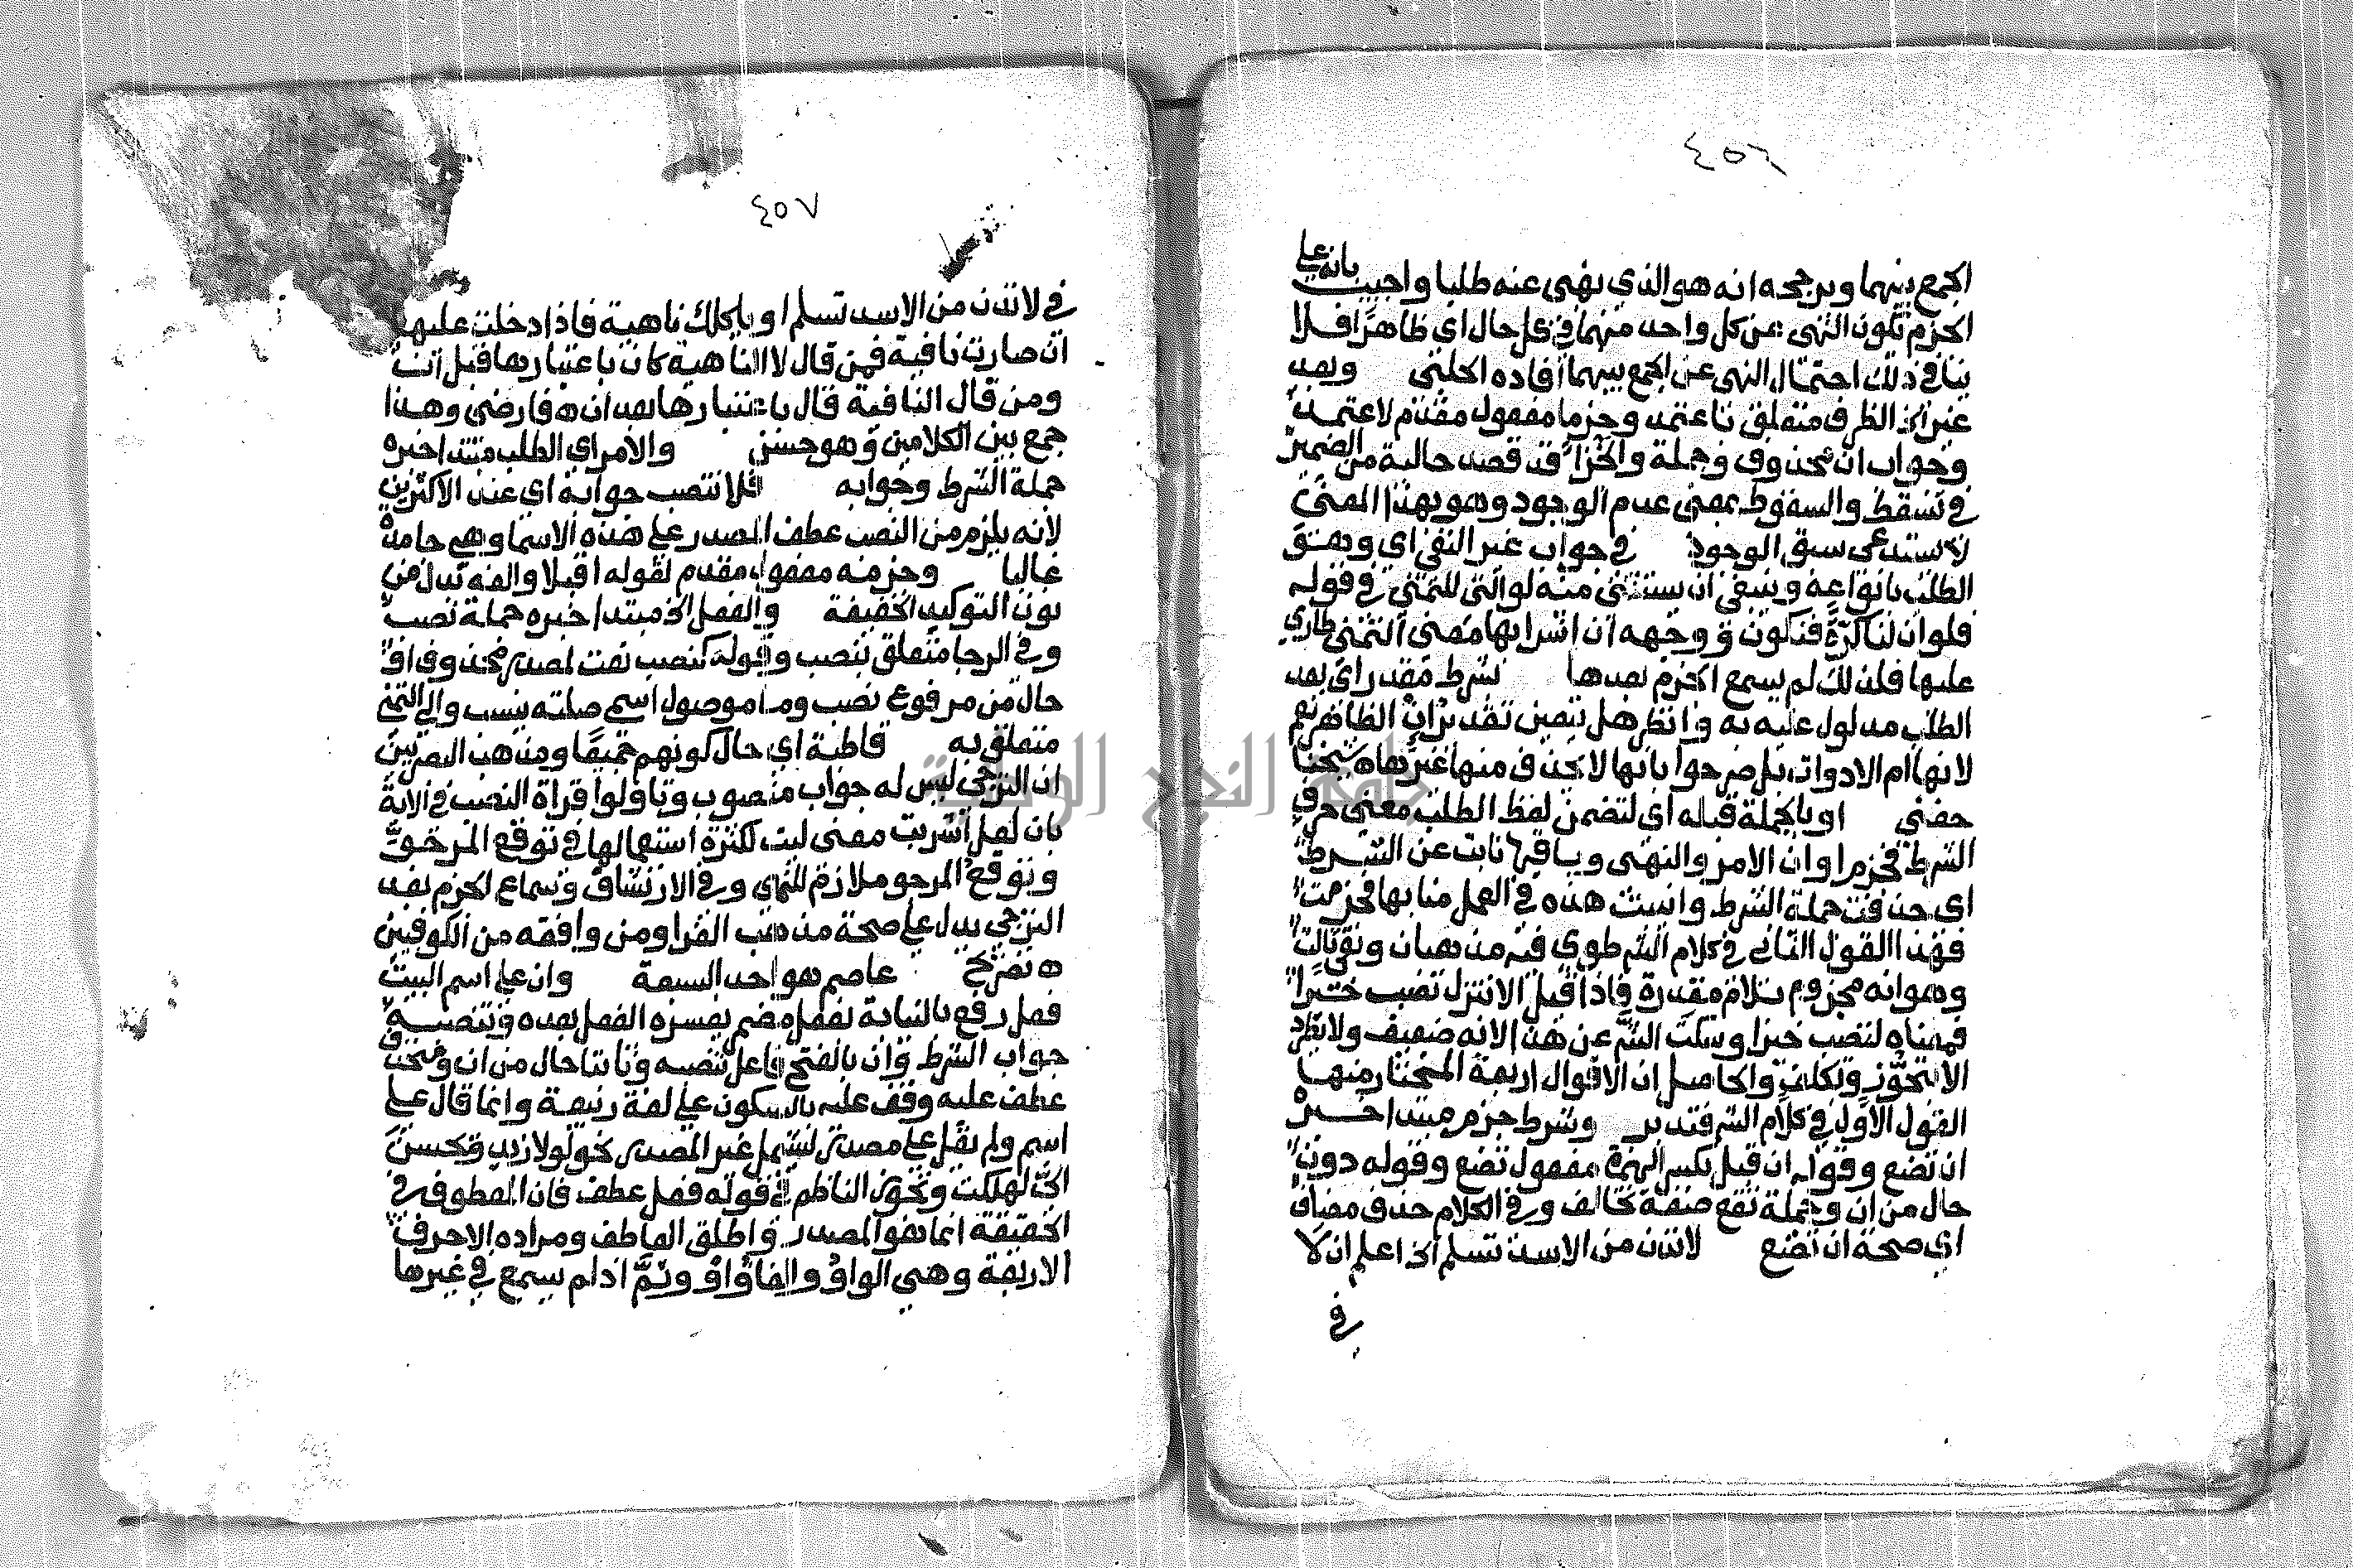 ٤٥٦
الجمع بينهما ويرجحه انه هو الذي نهى عنه طلبا واجيب بانه على
الجزم تكون النهى عن كل واحد منهما في كل حال اي ظاهرا فلا
ينافي ذلك احتمال النهى عن الجمع بينهما افاده الحلبي وبعد
غير الخ الظرف متعلق باعتمد وجزما مفعول مقدم لاعتمد
وجواب ان محذوف وجملة والجزا قد قصد حالية من الضمير
في تسقط والسقوط بمعنى عدم الوجود وهو بهذا المعنى
لا يستدعى سبق الوجود في جواب غير النفي اي وهو
الطلب بانواعه وينبغى ان يستثنى منه لو التي للتمني في قوله
فلو ان لنا كرة فنكون ووجهه ان اشرابها معنى التمني طاري
عليها فلذلك لم يسمع الجزم بعدها بشرط مقدر اي بعد
الطلب مدلول عليه به وانظر هل يتعين تقدير ان الظاهر نعم
لانها ام الادوات بل صرحوا بانها لا يحذف منها غيرها ه شيخنا
حفني او بالجملة قبله اي لتضمن لفظ الطلب معنى حرف
الشرط فجزم او ان الامر والنهى وباقيها نابت عن الشرط
اى حذفت جملة الشرط وانيبت هذه في العمل منابها فجزمت
فهذا القول الثاني في كلام الش طوى فيه مذهبان وبقي ثالث
وهو انه مجزوم بلام مقدرة فاذا قيل الا تنزل تصب خيرا
فمعناه لتصب خيرا وسكت الش عن هذا لانه ضعيف ولا يطرد
الا بتجوز وتكلف والحاصل ان الاقوال اربعة المختار منها
القول الاول في كلام الش فتدبر وشرط جزم مبتدا خبره
ان تضع وقوله ان قبل بكسر الهمزة مفعول تضع وقوله دون
حال من ان وجملة تقع صفة تخالف وفي الكلام حذف مضاف
اي صحة ان تضع لا تدن من الاسد تسلم الخ اعلم ان لا
في
٤٥٧
في لا تدن من الاسد تسلم او ياكلك ناهية فاذا دخلت عليها
ان صارت نافية فمن قال لا الناهية كان باعتبارها قبل ان
ومن قال النافية قال باعتبارها بعد ان ه فارضى وهذا
جمع بين الكلامين وهو حسن والامر اي الطلب مبتدا خبره
جملة الشرط وجوابه فلا تنصب جوابه اي عند الاكثرين
لانه يلزم من النصب عطف المصدر على هذه الاسما وهي جامدة
غالبا وجزمه مفعول مقدم لقوله اقبلا والفه بدل من
نون التوكيد الخفيفة والفعل الخ مبتدا خبره جملة نصب
وفي الرجا متعلق بنصب وقوله كنصب نعت لمصدر محذوف او
حال من مرفوع نصب وما موصول اسمي صلته ينتسب والى التمني
متعلق به قاطبة اي حال كونهم جميعا ومذهب البصريين
ان الترجي ليس له جواب منصوب وتاولوا قراة النصب في الاية
بان لعل اشربت معنى ليت لكثرة استعمالها في توقع المرجو
وتوقع المرجو ملازم للتمني وفي الارتشاف وسماع الجزم بعد
الترجي يدل على صحة مذهب الفرا ومن وافقه من الكوفيين
ه تصريح عاصم هو احد السبعة وان على اسم البيت
فعل رفع بالنيابة بفعل مضمر يفسره الفعل بعده وتنصبه
جواب الشرط وان بالفتح فاعل تنصبه وثابتا حال من ان ومنحذف
عطف عليه وقف عليه بالسكون على لغة ربيعة وانما قال على
اسم ولم يقل على مصدر ليشمل غير المصدر نحو لولا زيد ويحسن
الى لهلكت وتجوز الناظم في قوله فعل عطف فان المعطوف في
الحقيقة انما هو المصدر واطلق العاطف ومراده الاحرف
الاربعة وهي الواو والفا واو وثم اذ لم يسمع في غيرها